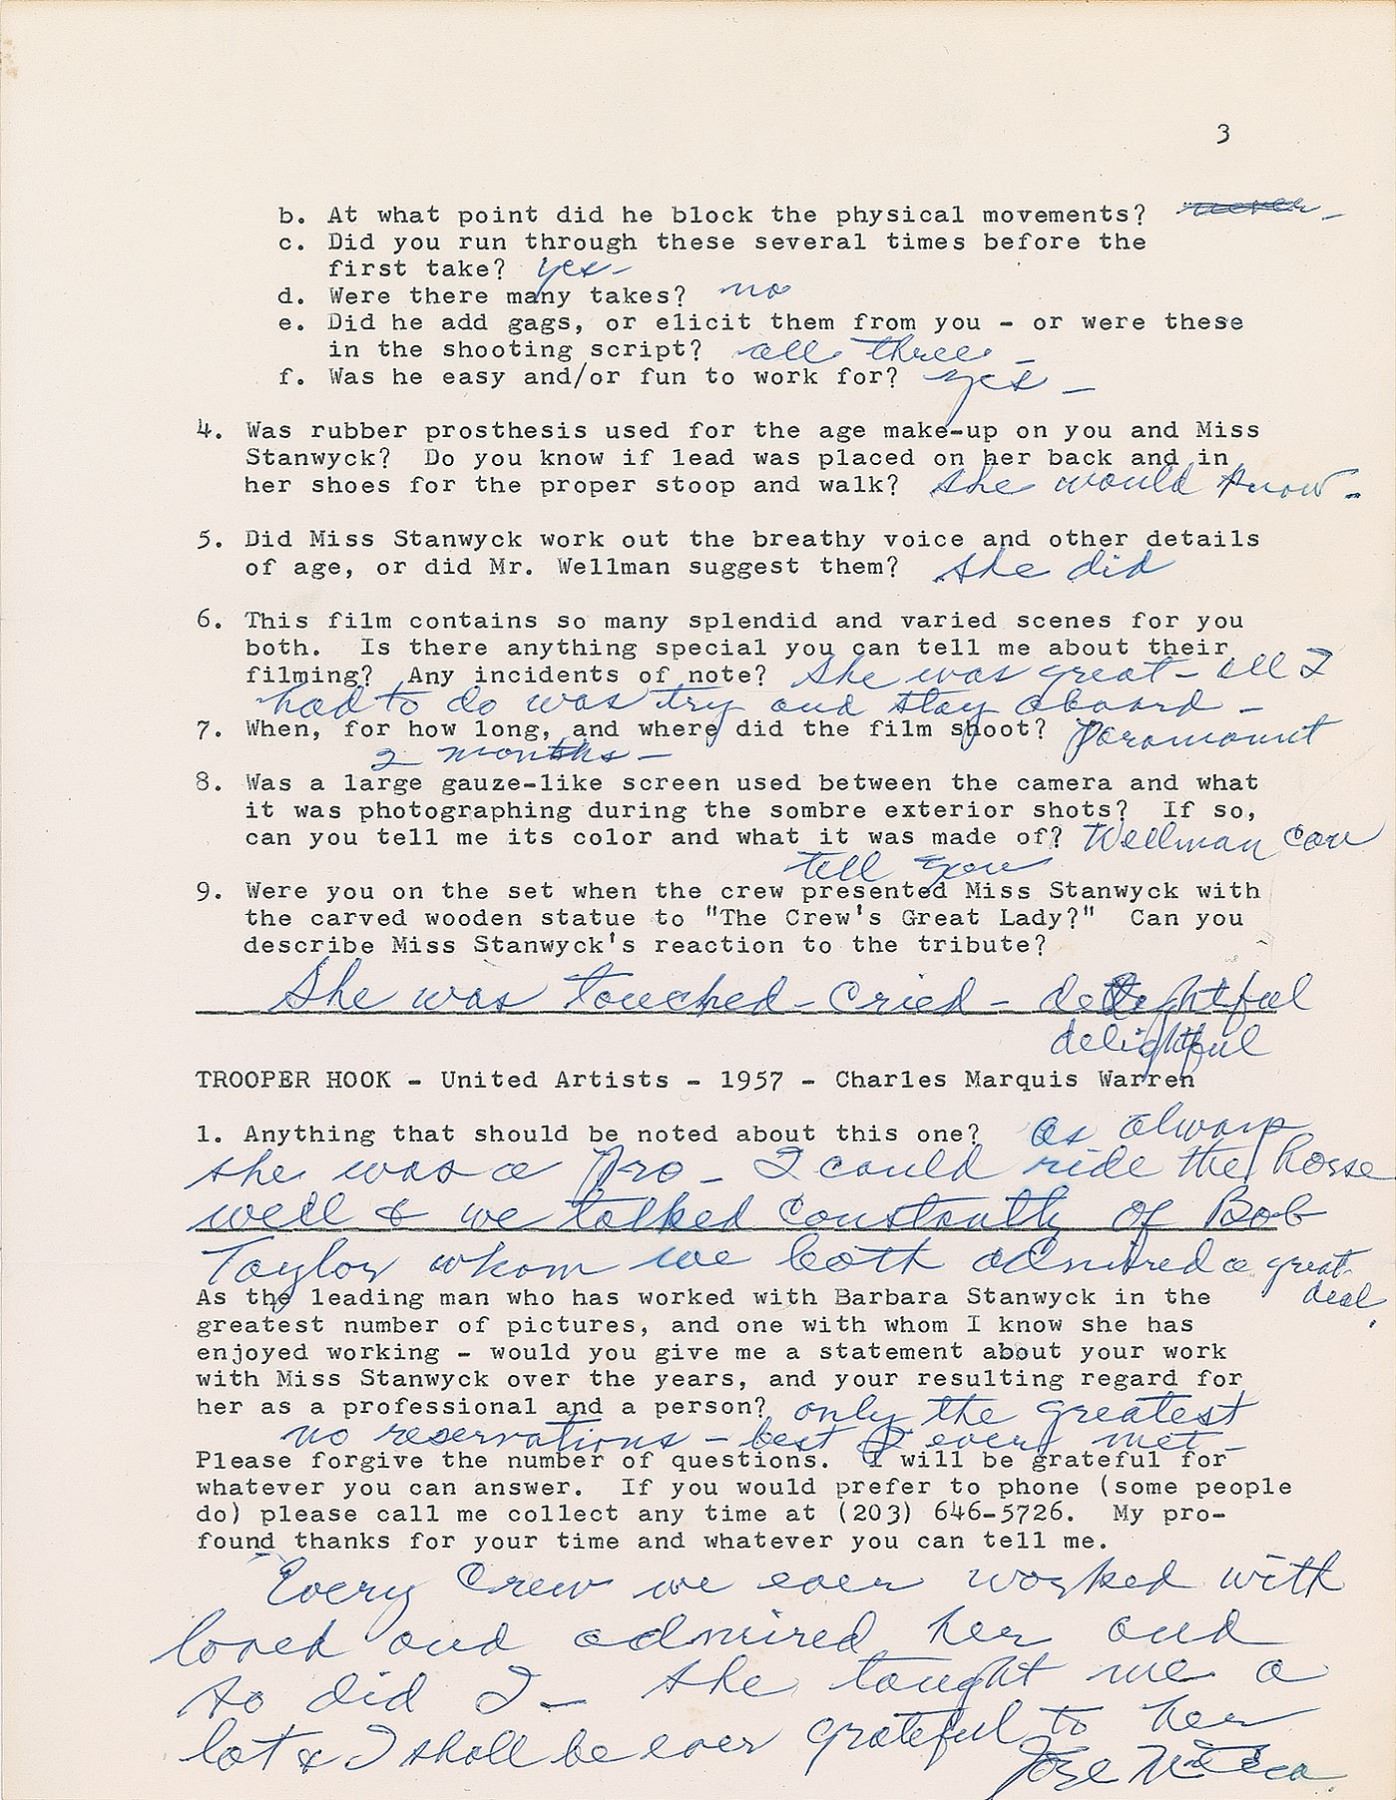 3
b. At what point did he block the physical movements? never -
c. Did you run through these several times before the
first take? yes -
d. Were there many takes? no
e. Did he add gags, or elicit them from you - or were these
in the shooting script? all three -
f. Was he easy and/or fun to work for? yes -
4. Was rubber prosthesis used for the age make-up on you and Miss
Stanwyck? Do you know if lead was placed on her back and in
her shoes for the proper stoop and walk? She would know -
5. Did Miss Stanwyck work out the breathy voice and other details
of age, or did Mr. Wellman suggest them? She did
6. This film contains so many splendid and varied scenes for you
both. Is there anything special you can tell me about their
filming? Any incidents of note? She was great - all I
had to do was try and stay aboard -
7. When, for how long, and where did the film shoot? Paramount
2 months -
8. Was a large gauze-like screen used between the camera and what
it was photographing during the sombre exterior shots? If so,
can you tell me its color and what it was made of? Wellman can
tell you
9. Were you on the set when the crew presented Miss Stanwyck with
the carved wooden statue to "The Crew's Great Lady?" Can you
describe Miss Stanwyck's reaction to the tribute?
She was touched - cried - delightful
delightful
TROOPER HOOK - United Artists - 1957 - Charles Marquis Warren
1. Anything that should be noted about this one? As always
she was a Pro - I could ride the horse
well & we talked constantly of Bob
Taylor whom we both admired a great
deal.
As the leading man who has worked with Barbara Stanwyck in the
greatest number of pictures, and one with whom I know she has
enjoyed working - would you give me a statement about your work
with Miss Stanwyck over the years, and your resulting regard for
her as a professional and a person? only the greatest
no reservations - best I ever met -
Please forgive the number of questions. I will be grateful for
whatever you can answer. If you would prefer to phone (some people
do) please call me collect any time at (203) 646-5726. My pro-
found thanks for your time and whatever you can tell me.
Every Crew we ever worked with
loved and admired her and
so did I - she taught me a
lot & I shall be ever grateful to her
Joel McCrea.